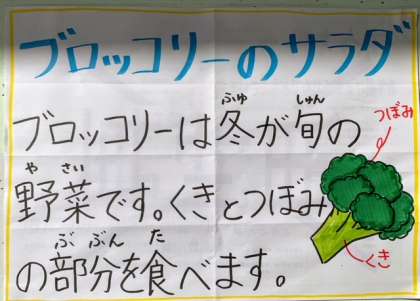 ブロッコリーのサラダ
ふゆ しゅん
ブロッコリーは冬が旬の
つぼみ
や さい
野菜です。くきとつぼみ
くき
ぶ ぶん た
の部分を食べます。